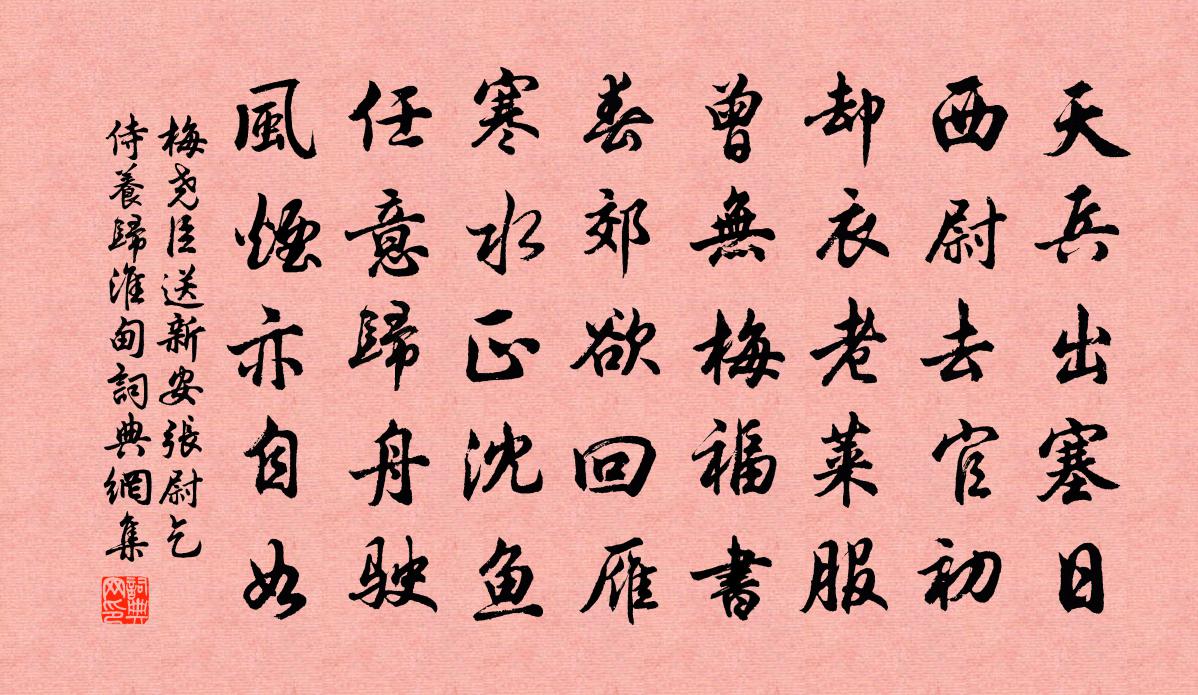 天兵出塞日
西尉去官初
却衣老萊服
曾無梅福書
春郊欲回雁
寒水正沈魚
任意歸舟駛
風煙亦自如
梅堯臣送新安張尉乞
侍養歸淮甸詞典網集
詞典網印